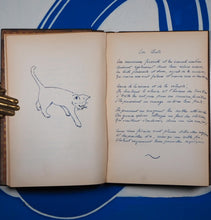 Les Chats
Les amoureux fervents et les savants austères
Aiment également dans leur mûre saison
Les chats puissants et doux, orgueil de la maison
Qui comme eux sont frileux et comme eux sédentaires.
Amis de la science et de la volupté,
Ils cherchent le silence et l'horreur des ténèbres
L'Erèbe les eût pris pour ses coursiers funèbres
S'ils pouvaient au servage incliner leur fierté.
Ils prennent en songeant les nobles attitudes
Des grands sphinx allongés au fond des solitudes
Qui semblent s'endormir dans un rêve sans fin
Leurs reins féconds sont pleins d'étincelles magiques
Et des parcelles d'or, ainsi qu'un sable fin
Etoilent vaguement leurs prunelles mystiques